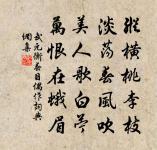 縱橫桃李枝
淡蕩春風吹
美人歌白苧
萬恨在蛾眉
武元衡春日偶作詞典
網集